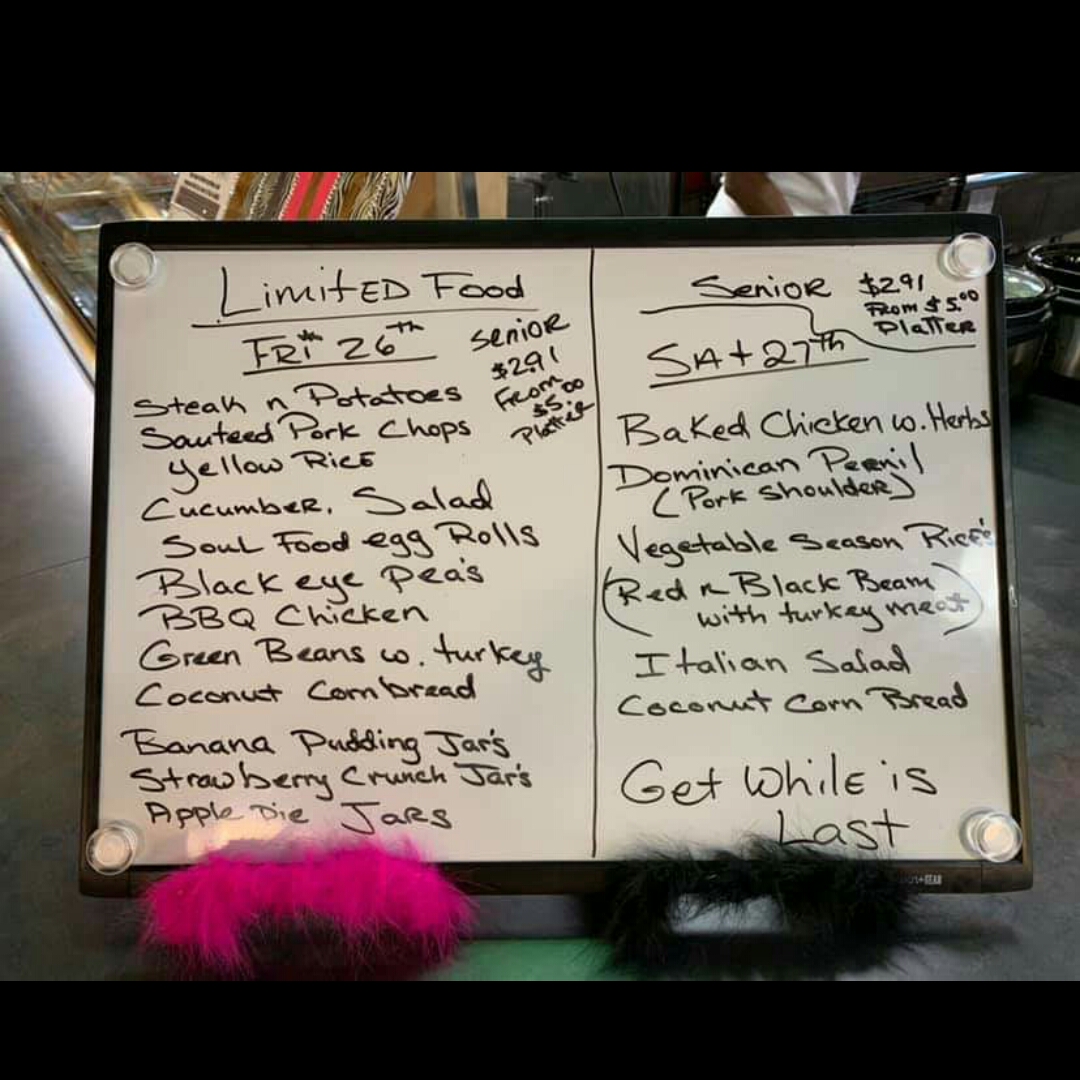 Limited Food
Fri 26th
Senior
$2.91
From
$5.00
Platter
Steak n Potatoes
Sauteed Pork Chops
Yellow Rice
Cucumber, Salad
Soul Food egg Rolls
Black eye pea's
BBQ Chicken
Green Beans w. turkey
Coconut Cornbread
Banana Pudding Jar's
Strawberry Crunch Jar's
Apple Pie Jars
Senior $2.91
From $5.00
Platter
Sat 27th
Baked Chicken w. Herbs
Dominican Pernil
(Pork Shoulder)
Vegetable Season Rice's
(Red n Black Beans
with turkey meat)
Italian Salad
Coconut Corn Bread
Get While is
Last